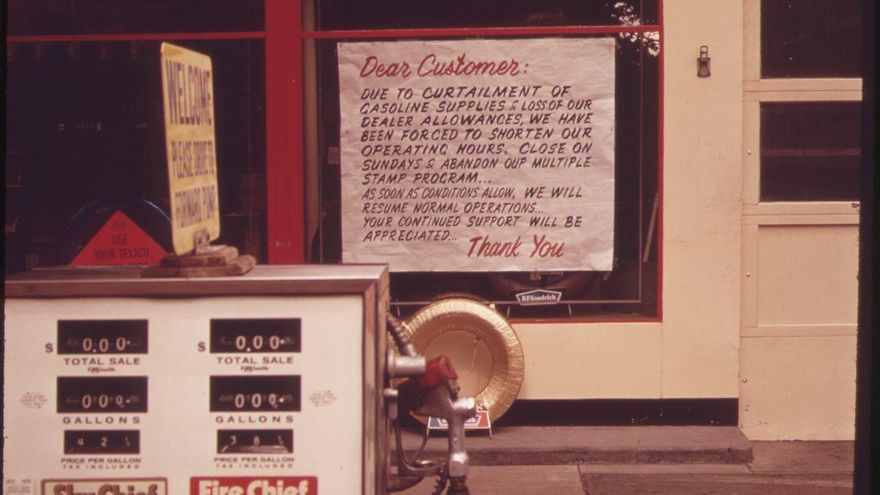 Dear Customer:
DUE TO CURTAILMENT OF
GASOLINE SUPPLIES & LOSS OF OUR
DEALER ALLOWANCES, WE HAVE
BEEN FORCED TO SHORTEN OUR
OPERATING HOURS. CLOSE ON
SUNDAYS & ABANDON OUP MULTIPLE
STAMP PROGRAM...
AS SOON AS CONDITIONS ALLOW, WE WILL
RESUME NORMAL OPERATIONS...
YOUR CONTINUED SUPPORT WILL BE
APPRECIATED... Thank You
WELCOME
PLEASE
FORWARD PUMP
USE
YOUR TEXACO
BFGoodrich
$ 0.00
TOTAL SALE
000
GALLONS
42
PRICE PER GALLON
TAX INCLUDED
Sky Chief
$ 0.00
TOTAL SALE
000
GALLONS
38
PRICE PER GALLON
TAX INCLUDED
Fire Chief